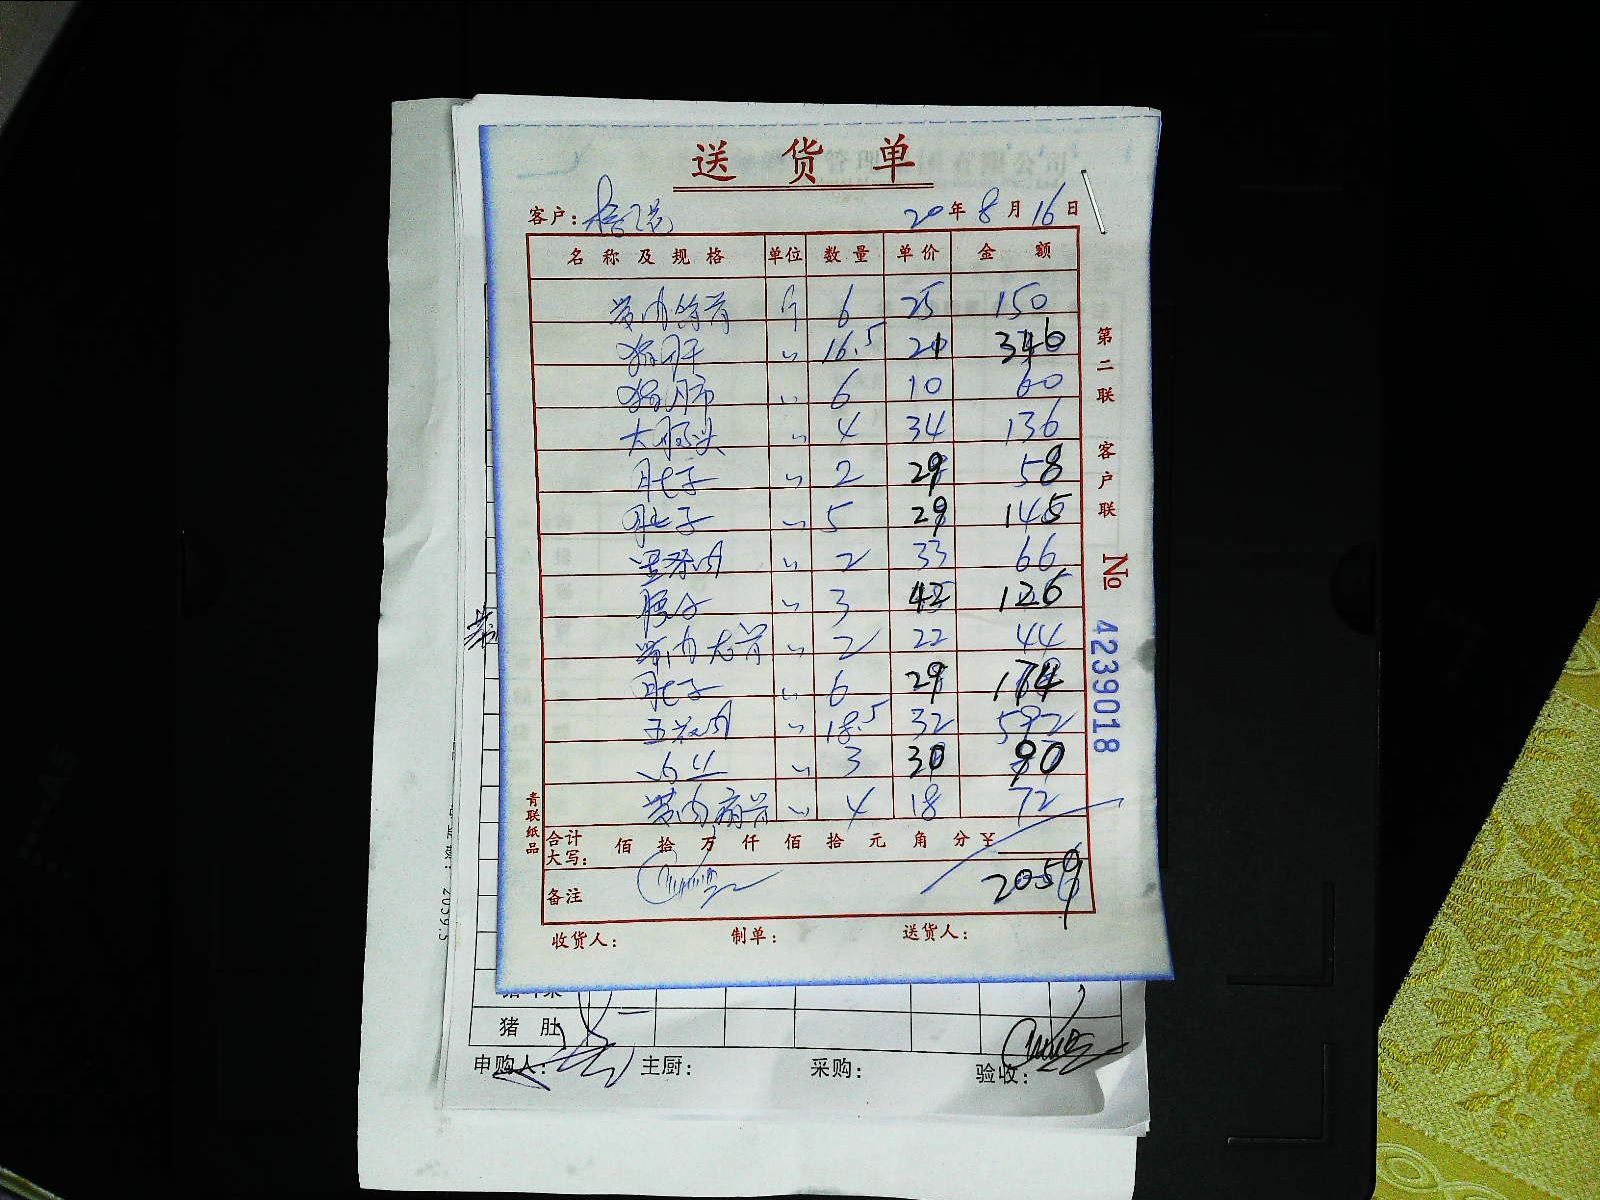 送货单
客户: 20年8月16日
名称及规格 单位 数量 单价 金额
带肉 斤 6 25 150
猪肝 〃 16.5 21 346
猪肺 〃 6 10 60
大肠头 〃 4 34 136
肚子 〃 2 29 58
肚子 〃 5 29 145
里脊肉 〃 2 33 66
腰子 〃 3 42 126
带肉龙骨 〃 2 22 44
肚子 〃 6 29 174
五花肉 〃 18.5 32 592
〃 3 30 90
带肉扇骨 〃 4 18 72
合计大写: 佰 拾 万 仟 佰 拾 元 角 分 ¥
备注 2059
收货人: 制单: 送货人:
第二联 客户联 No 4239018
青联纸品
2059.5
猪肚
申购人: 主厨: 采购: 验收: